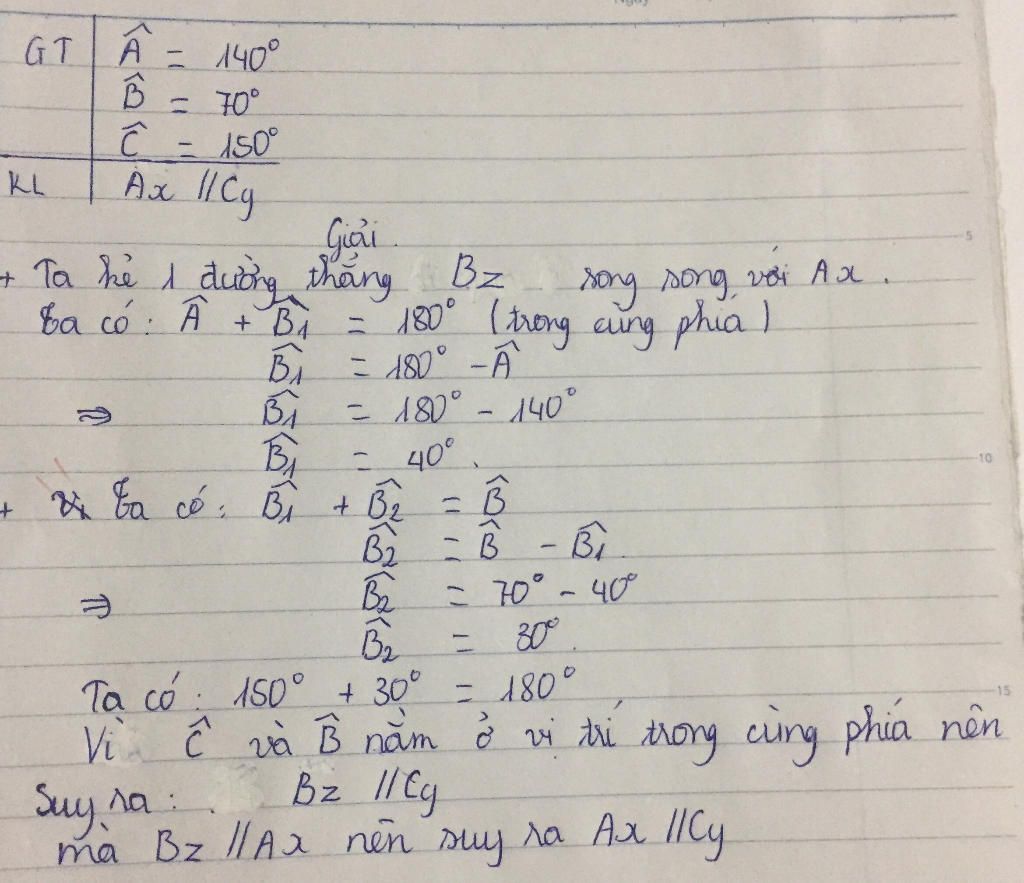 GT Â = 140°
B̂ = 70°
Ĉ = 150°
KL Ax // Cy
Giải.
+ Ta kẻ 1 đường thẳng Bz song song với Ax.
Ta có: Â + B̂1 = 180° (trong cùng phía)
B̂1 = 180° - Â
⇒ B̂1 = 180° - 140°
B̂1 = 40°.
+ Ta có: B̂1 + B̂2 = B̂
B̂2 = B̂ - B̂1.
⇒ B̂2 = 70° - 40°
B̂2 = 30°.
Ta có: 150° + 30° = 180°
Vì Ĉ và B̂ nằm ở vị trí trong cùng phía nên
suy ra: Bz // Cy
mà Bz // Ax nên suy ra Ax // Cy
5
10
15